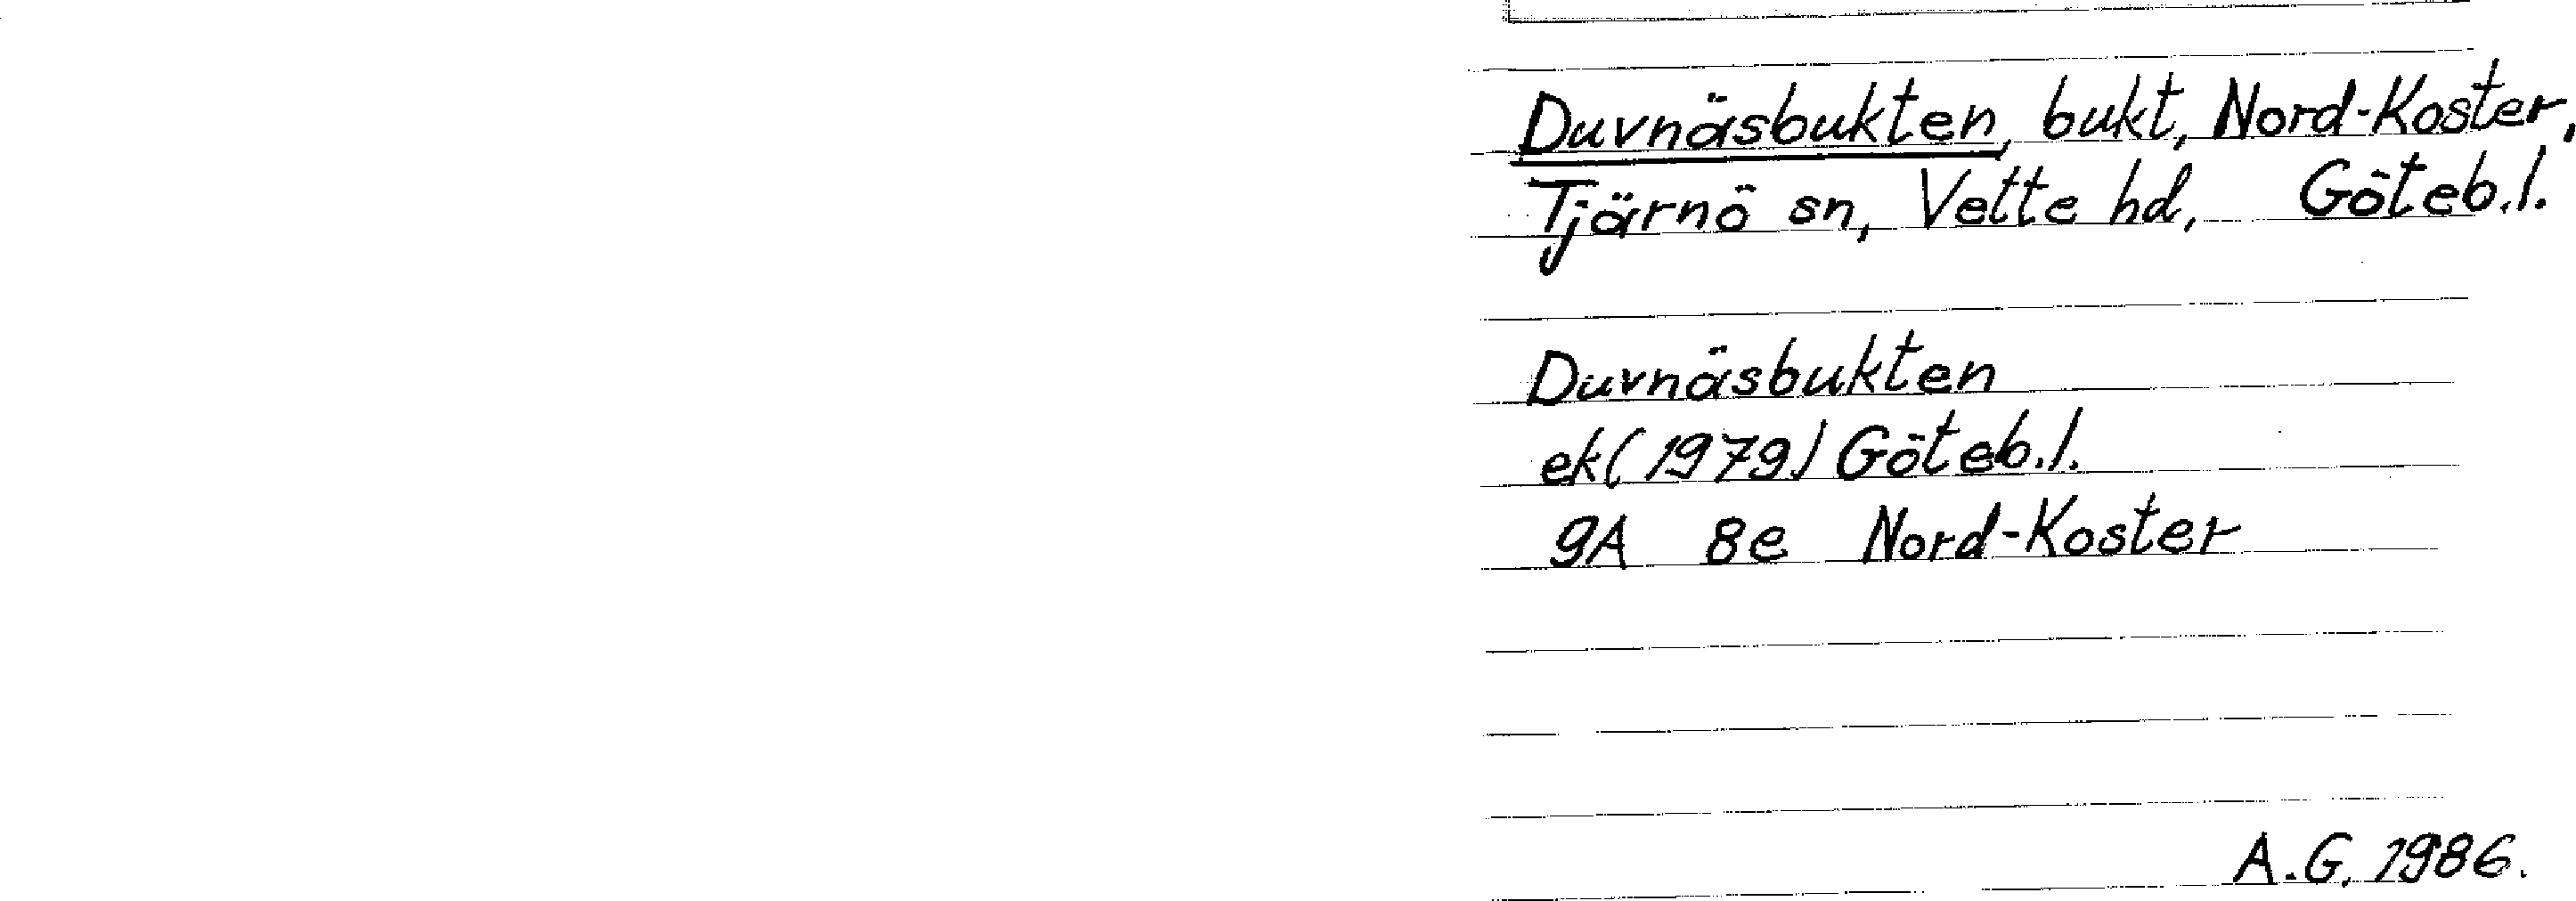 Duvnäsbukten, bukt, Nord-Koster,
Tjärnö sn, Vette hd, Göteb.l.
Duvnäsbukten
ek(1979) Göteb.l.
9A 8e Nord-Koster
A.G. 1986.